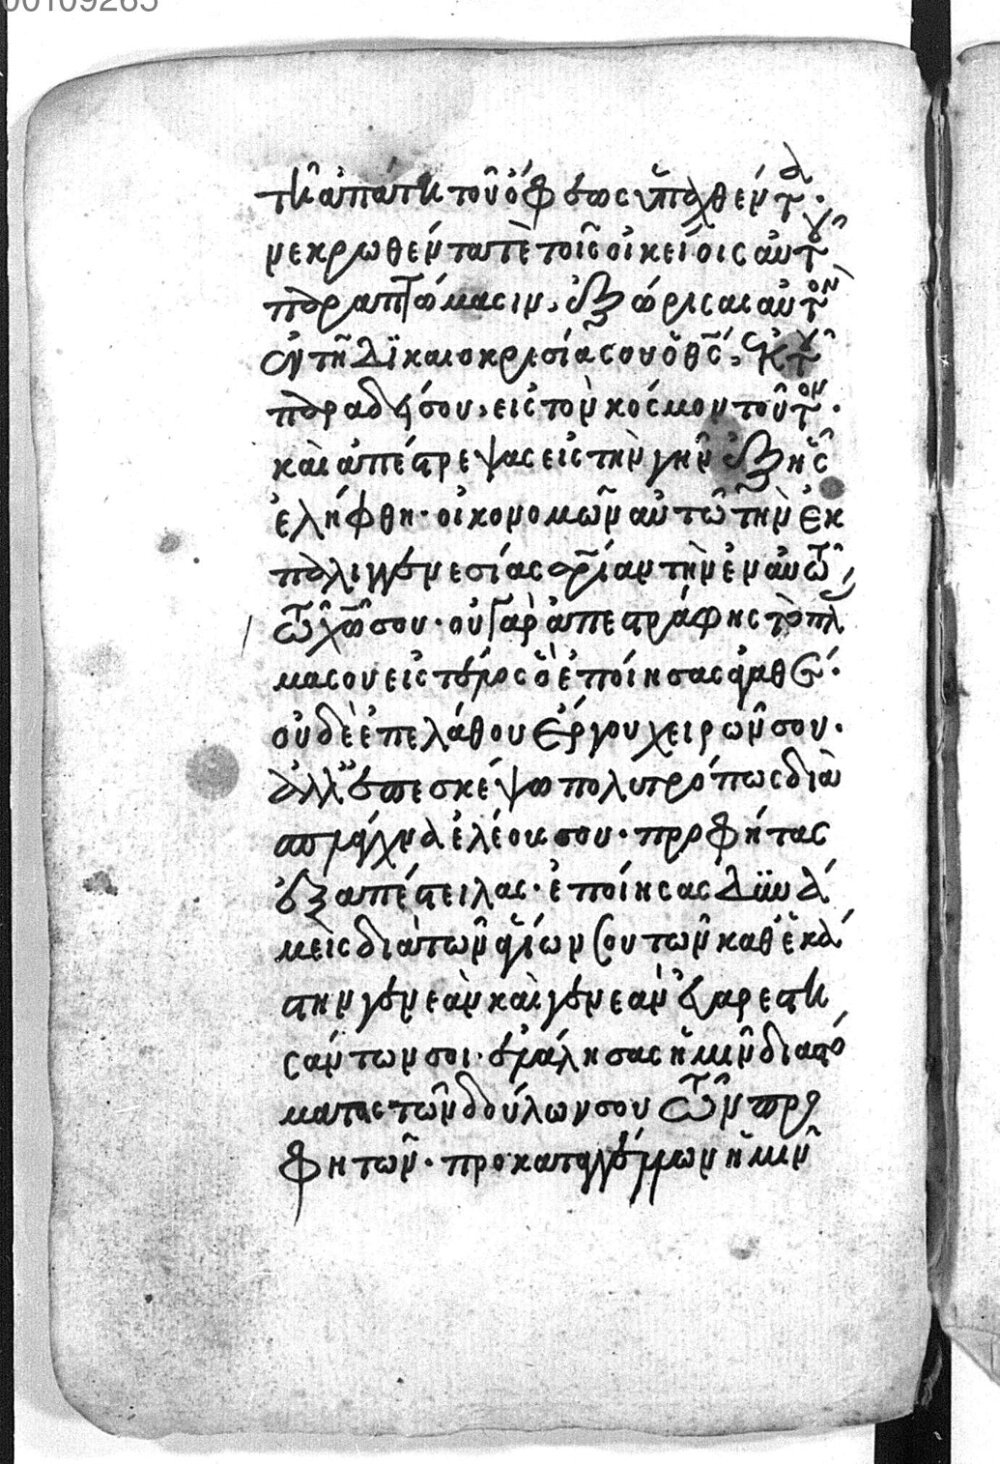 00109265
τῆ ἀπάτη τοῦ ὄφεως ὑπαχθέντα.
νεκρωθέντα τὲ τοῖς οἰκείοις αὐτοῦ
παραπτώμασιν, ἐξώρισας αὐτὸν
ἐν τῆ δικαιοκρισία σου ὁ θς, ἐκ τοῦ
παραδείσου, εἰς τὸν κόσμον τοῦτον.
καὶ ἀπέστρεψας εἰς τὴν γῆν ἐξ ἧς
ἐλήφθη. οἰκονομῶν αὐτῶ τὴν ἐκ
παλιγγενεσίας σρίαν τὴν ἐν αὐτῶ
τῶ χῶ σου. οὐ γὰρ ἀπεστράφης τὸ πλά
σμα σου εἰς τέλος ὃ ἐποίησας ἀγαθέ.
οὐδὲ ἐπελάθου ἔργου χειρῶν σου.
ἀλλ' ἐπεσκέψω πολυτρόπως διὰ
σπλάγχνα ἐλέους σου. προφήτας
ἐξαπέστειλας. ἐποίησας δυνά
μεις διὰ τῶν ἁγίων σου τῶν καθ' ἑκά
στην γενεὰν καὶ γενεὰν εὐαρεστη
σάντων σοι. ἐλάλησας ἡμῖν διὰ στό
ματος τῶν δούλων σου τῶν προ
φητῶν. προκαταγγέλλων ἡμῖν